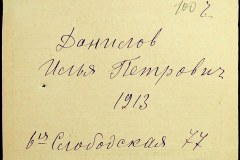 100 г
Данилов
Илья Петрович
1913
6ая Слободская 77